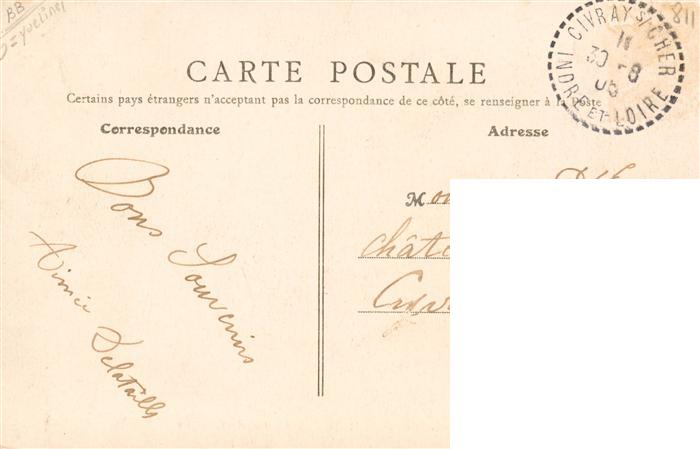 BB
Yvelines
811
CIVRAY S/ CHER
11
30 -8
05
INDRE-ET-LOIRE
CARTE POSTALE
Certains pays étrangers n'acceptant pas la correspondance de ce côté, se renseigner à la Poste
Correspondance
Bons Souvenirs
Aimée Delataille
Adresse
M
chât